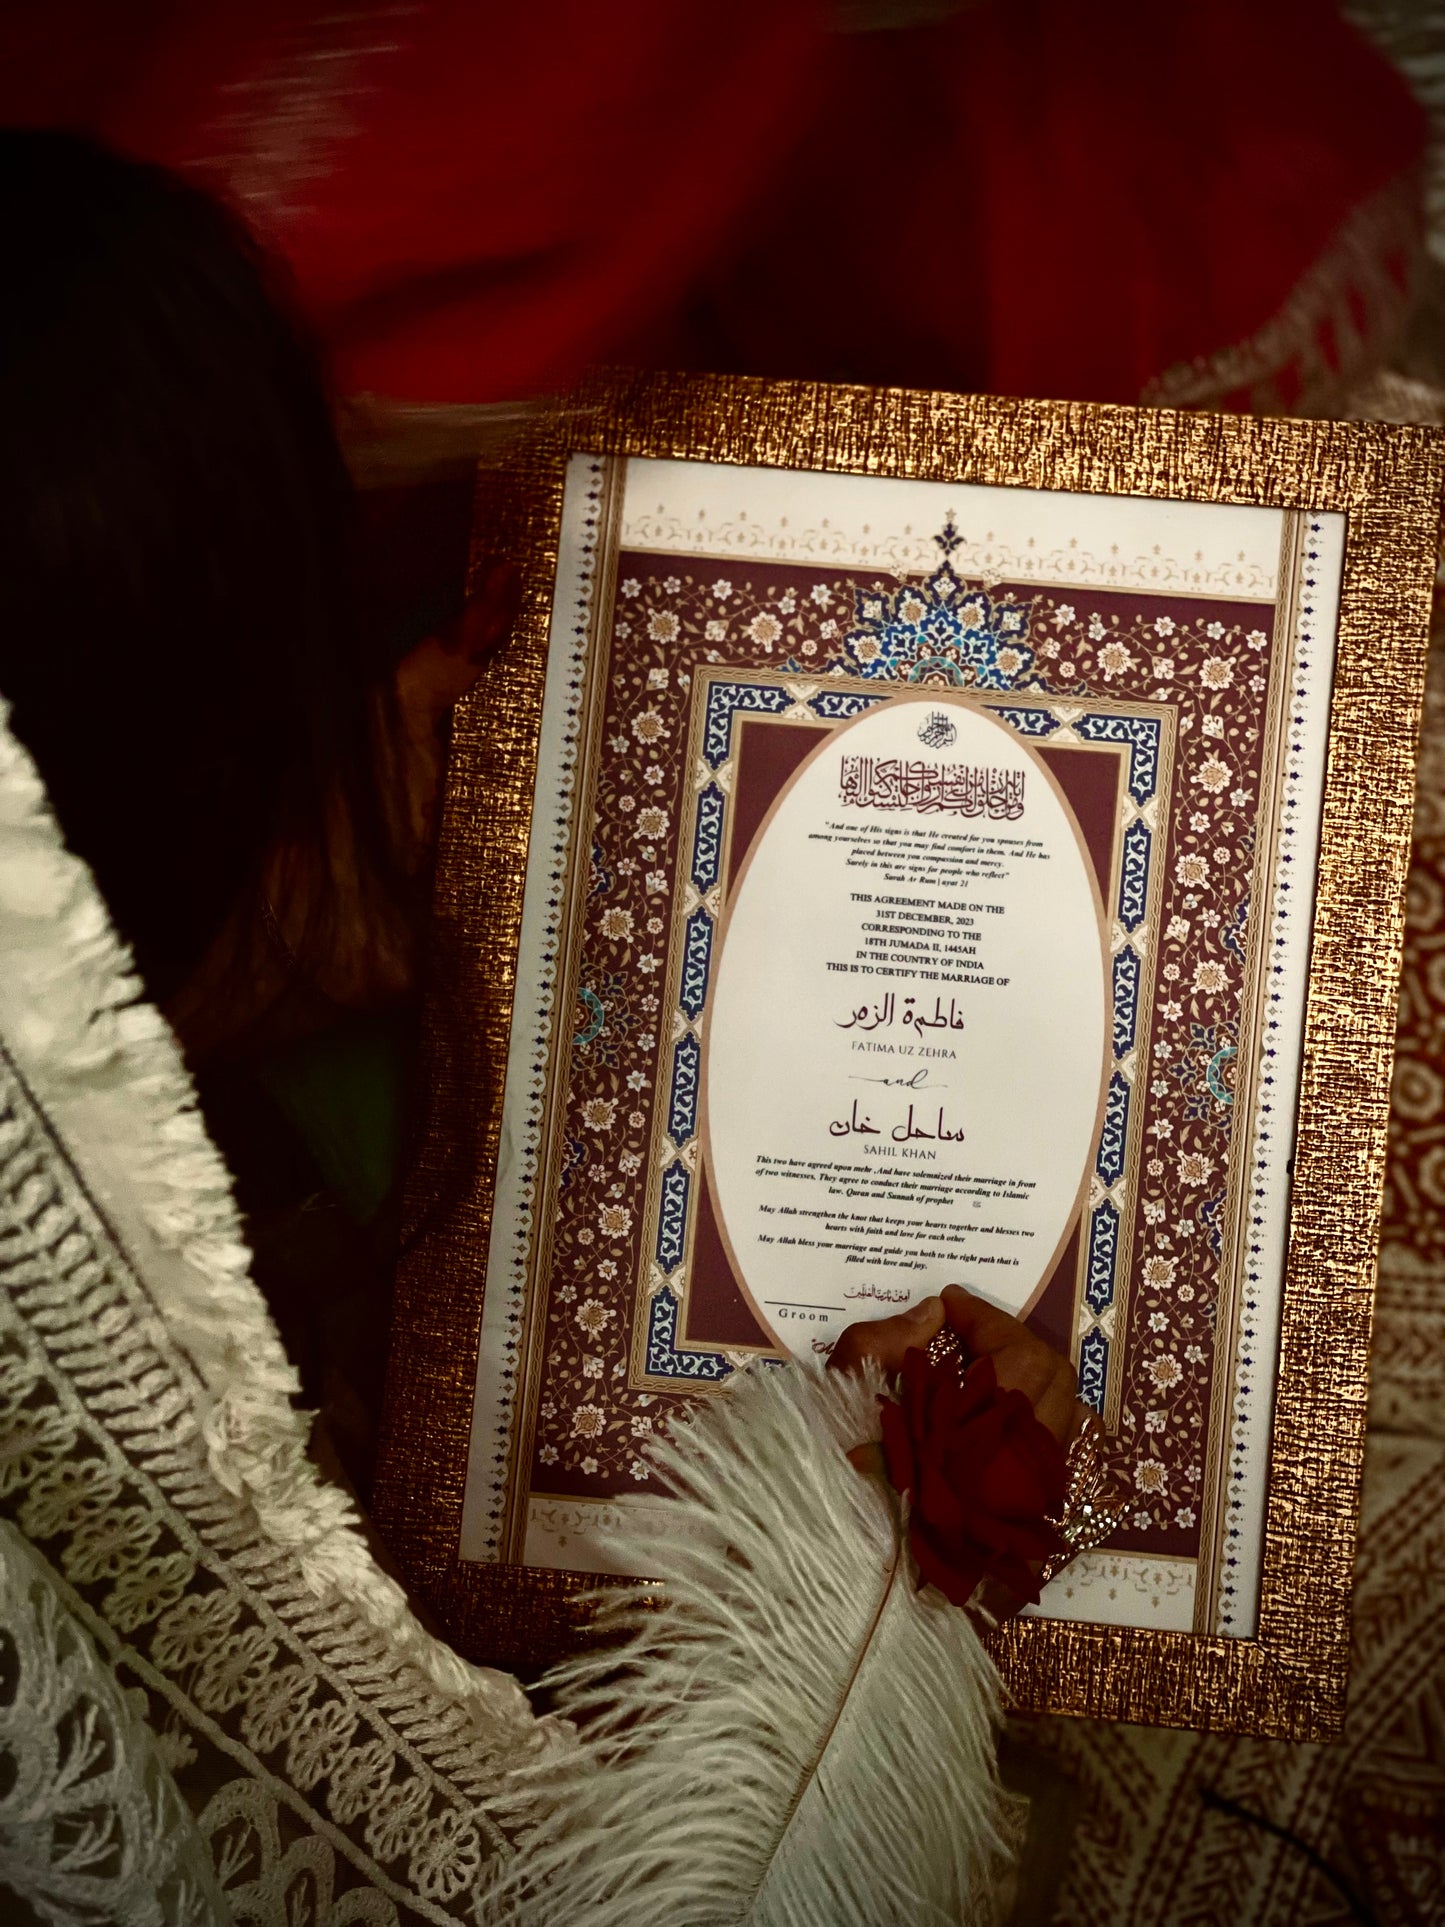 "And one of His signs is that He created for you spouses from
among yourselves so that you may find comfort in them. And He has
placed between you compassion and mercy.
Surely in this are signs for people who reflect"
Surah Ar Rum | ayat 21
THIS AGREEMENT MADE ON THE
31ST DECEMBER, 2023
CORRESPONDING TO THE
18TH JUMADA II, 1445AH
IN THE COUNTRY OF INDIA
THIS IS TO CERTIFY THE MARRIAGE OF
فاطمة الزهر
FATIMA UZ ZEHRA
and
ساحل خان
SAHIL KHAN
This two have agreed upon mehr ,And have solemnized their marriage in front
of two witnesses, They agree to conduct their marriage according to Islamic
law, Quran and Sunnah of prophet
May Allah strengthen the knot that keeps your hearts together and blesses two
hearts with faith and love for each other
May Allah bless your marriage and guide you both to the right path that is
filled with love and joy.
Groom